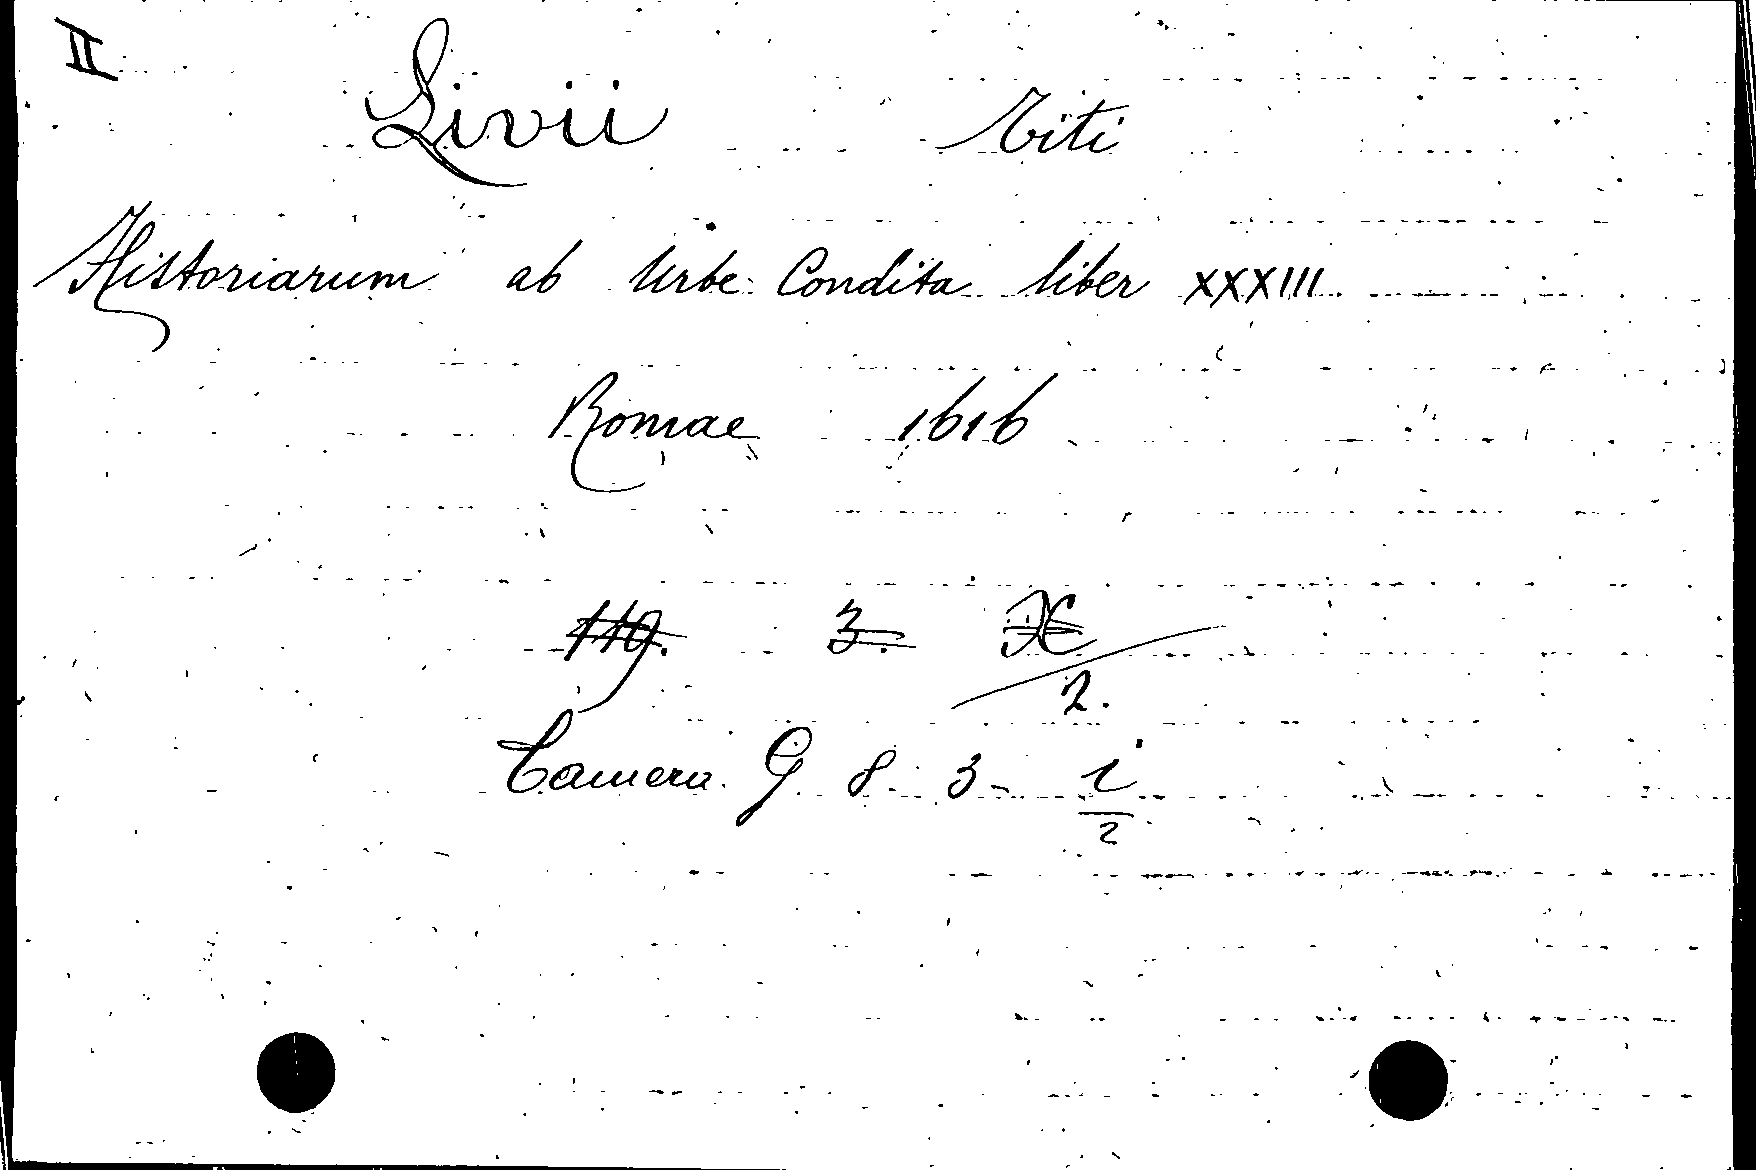 II
Livii Titi
Historiarum ab Urbe Condita liber XXXIII
Romae 1616
119. 3.
2.
Camera G 8 3 i
2